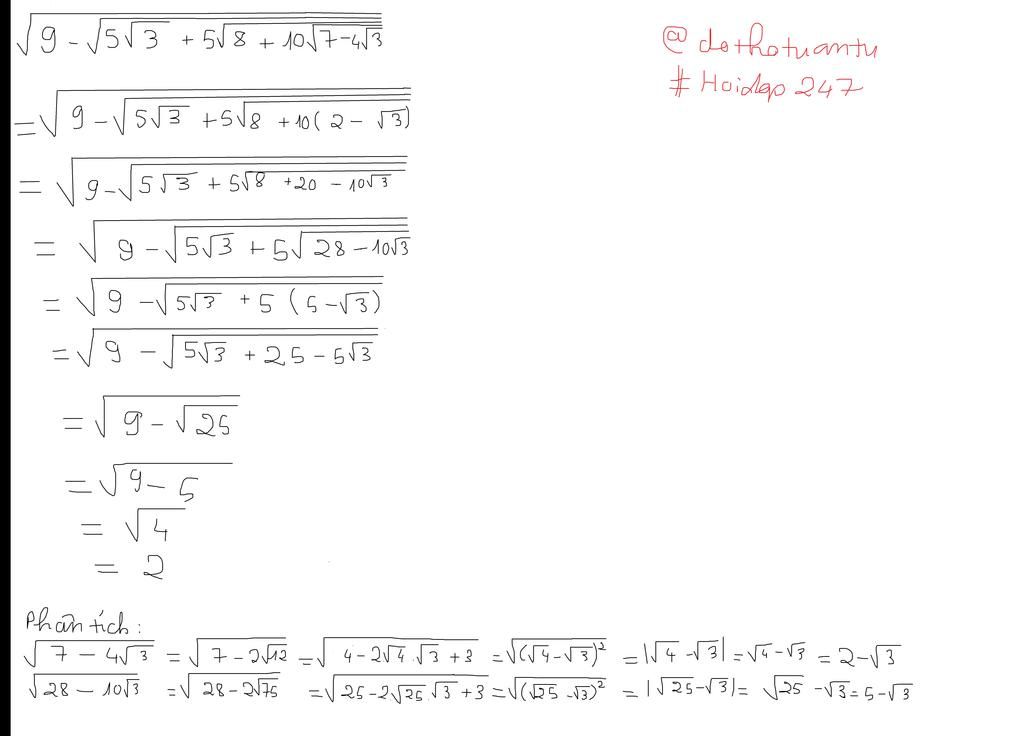 √(9 - √(5√3 + 5√(8 + 10√(7 - 4√3))))
@dothotuantu
#Hoidap247
= √(9 - √(5√3 + 5√(8 + 10(2 - √3))))
= √(9 - √(5√3 + 5√(8 + 20 - 10√3)))
= √(9 - √(5√3 + 5√(28 - 10√3)))
= √(9 - √(5√3 + 5(5 - √3)))
= √(9 - √(5√3 + 25 - 5√3))
= √(9 - √25)
= √(9 - 5)
= √4
= 2
Phân tích:
√(7 - 4√3) = √(7 - 2√12) = √(4 - 2√4.√3 + 3) = √((√4 - √3)²) = |√4 - √3| = √4 - √3 = 2 - √3
√(28 - 10√3) = √(28 - 2√75) = √(25 - 2√25.√3 + 3) = √((√25 - √3)²) = |√25 - √3| = √25 - √3 = 5 - √3